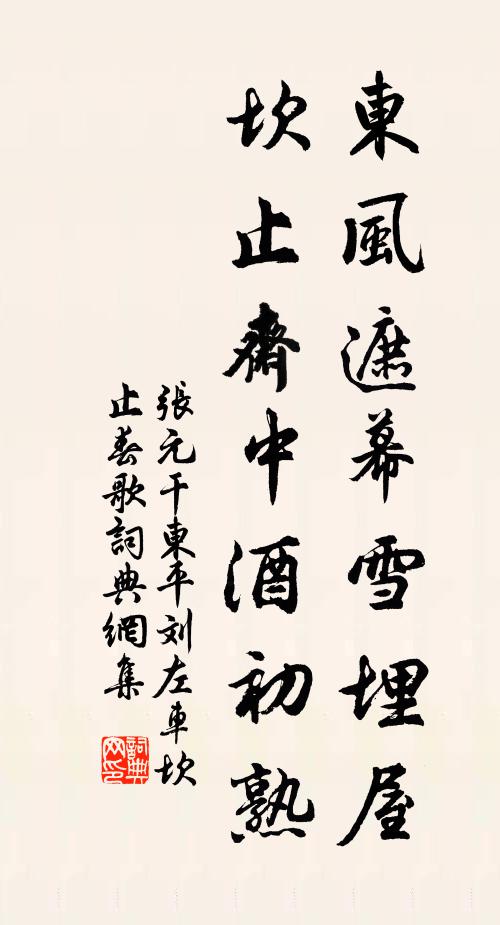 東風遮幕雪埋屋
坎止齋中酒初熟
張元干東平刘左車坎
止春歌詞典網集
詞典
网印